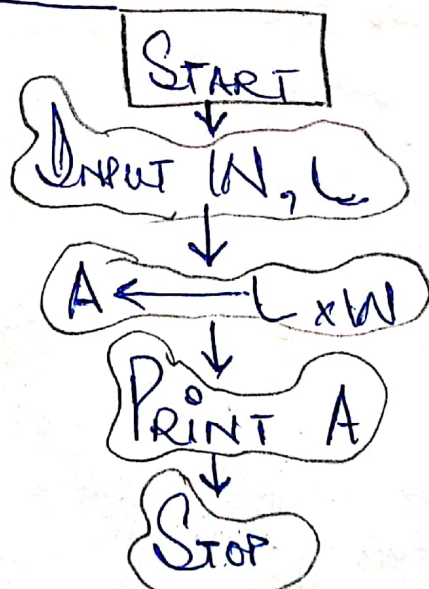 START
INPUT W, L
A ← L x W
PRINT A
STOP